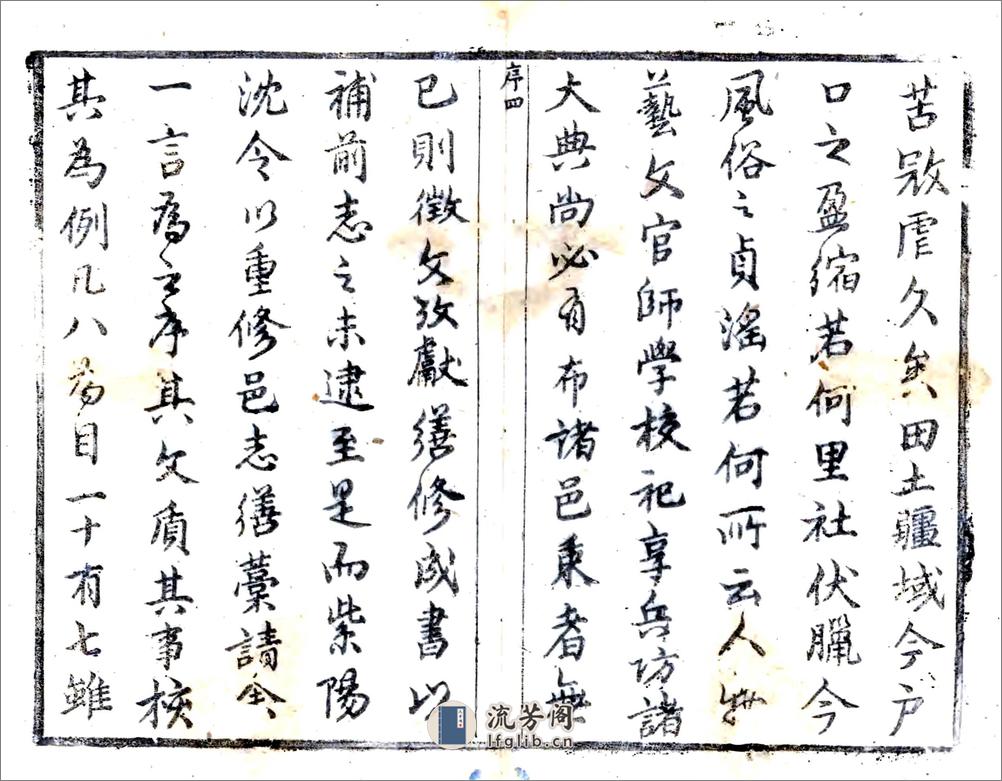 苦敗虐久矣田土疆域今户
口之盈缩若何里社伏臘今
風俗之貞滛若何所云人物
藝文官師學校祀享兵防諸
大典尚必有布諸邑乘者無
序四
已則徵文攷獻繕修成書以
補前志之未逮至是而紫陽
沈令以重修邑志繕藁請余
一言爲之序其文質其事核
其為例凡八為目一十有七雖
流芳阁
lfglib.cn